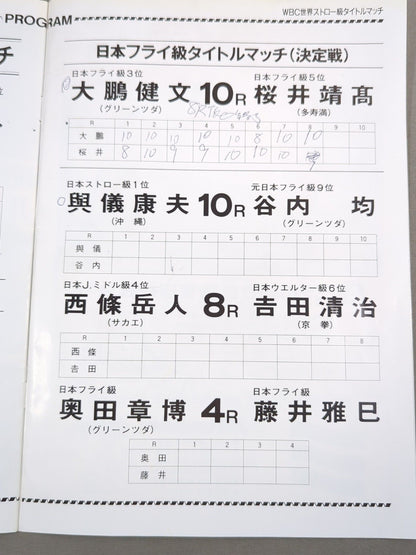 PROGRAM
WBC世界ストロー級タイトルマッチ
日本フライ級タイトルマッチ(決定戦)
日本フライ級3位 日本フライ級5位
大鵬健文 10R 桜井靖髙
(グリーンツダ) (多寿満)
R 1 2 3 4 5 6 7 8 9 10
大鵬 10 10 10 10 10 8 10 10
桜井 8 10 9 9 10 10 10
日本ストロー級1位 元日本フライ級9位
與儀康夫 10R 谷内均
(沖縄) (グリーンツダ)
R 1 2 3 4 5 6 7 8 9 10
與儀
谷内
日本J.ミドル級4位 日本ウエルター級6位
西條岳人 8R 𠮷田清治
(サカエ) (京拳)
R 1 2 3 4 5 6 7 8
西條
𠮷田
日本フライ級 日本フライ級
奥田章博 4R 藤井雅巳
(グリーンツダ)
R 1 2 3 4
奥田
藤井